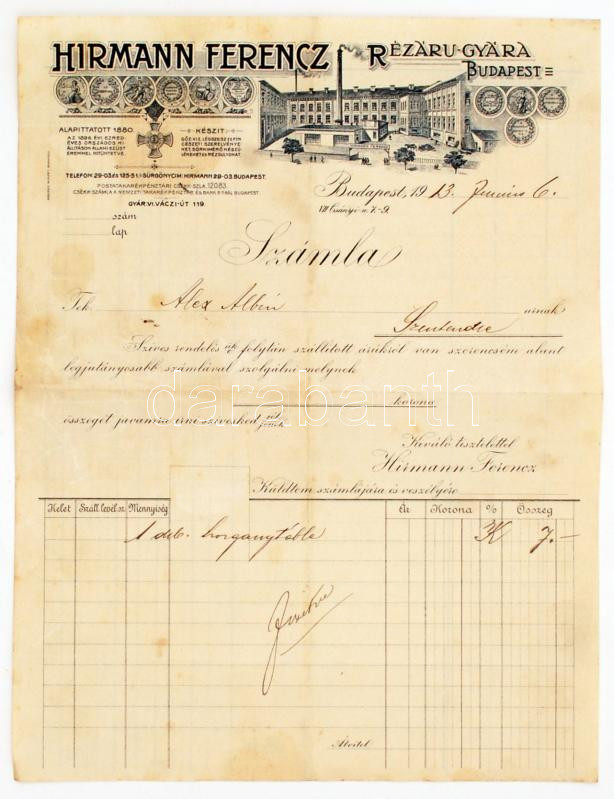 HIRMANN FERENCZ RÉZÁRU-GYÁRA
BUDAPEST
ALAPITTATOTT 1880.
AZ 1896. ÉVI EZRED-
ÉVES ORSZÁGOS KI-
ÁLLITÁSON ÁLLAMI EZÜST
ÉREMMEL KITÜNTETVE.
KÉSZIT
TELEFON 29-03 ÉS 125-51. SÜRGÖNYCIM: HIRMANN 29-03 BUDAPEST.
POSTATAKARÉKPÉNZTÁRI CSEKK-SZLA. 12083.
GYÁR: VI. VÁCZI-ÚT 119.
Budapest, 1913. Junius 6.
VII Csányi u. 7-9.
szám
lap
Számla
Tek. Alex Albin úrnak
Szentendre
Szives rendelés folytán szállitott árúkról van szerencsém alant
legjutányosabb számlával szolgálni melynek
korona
összegét javamra irni sziveskedjék
Kiváló tisztelettel
Hirmann Ferencz
Küldtem számlájára és veszélyére
Kelet Száll.levél sz. Mennyiség Ár Korona % Összeg
1 db. horganytábla K 7.-
Átvitel
darabanth